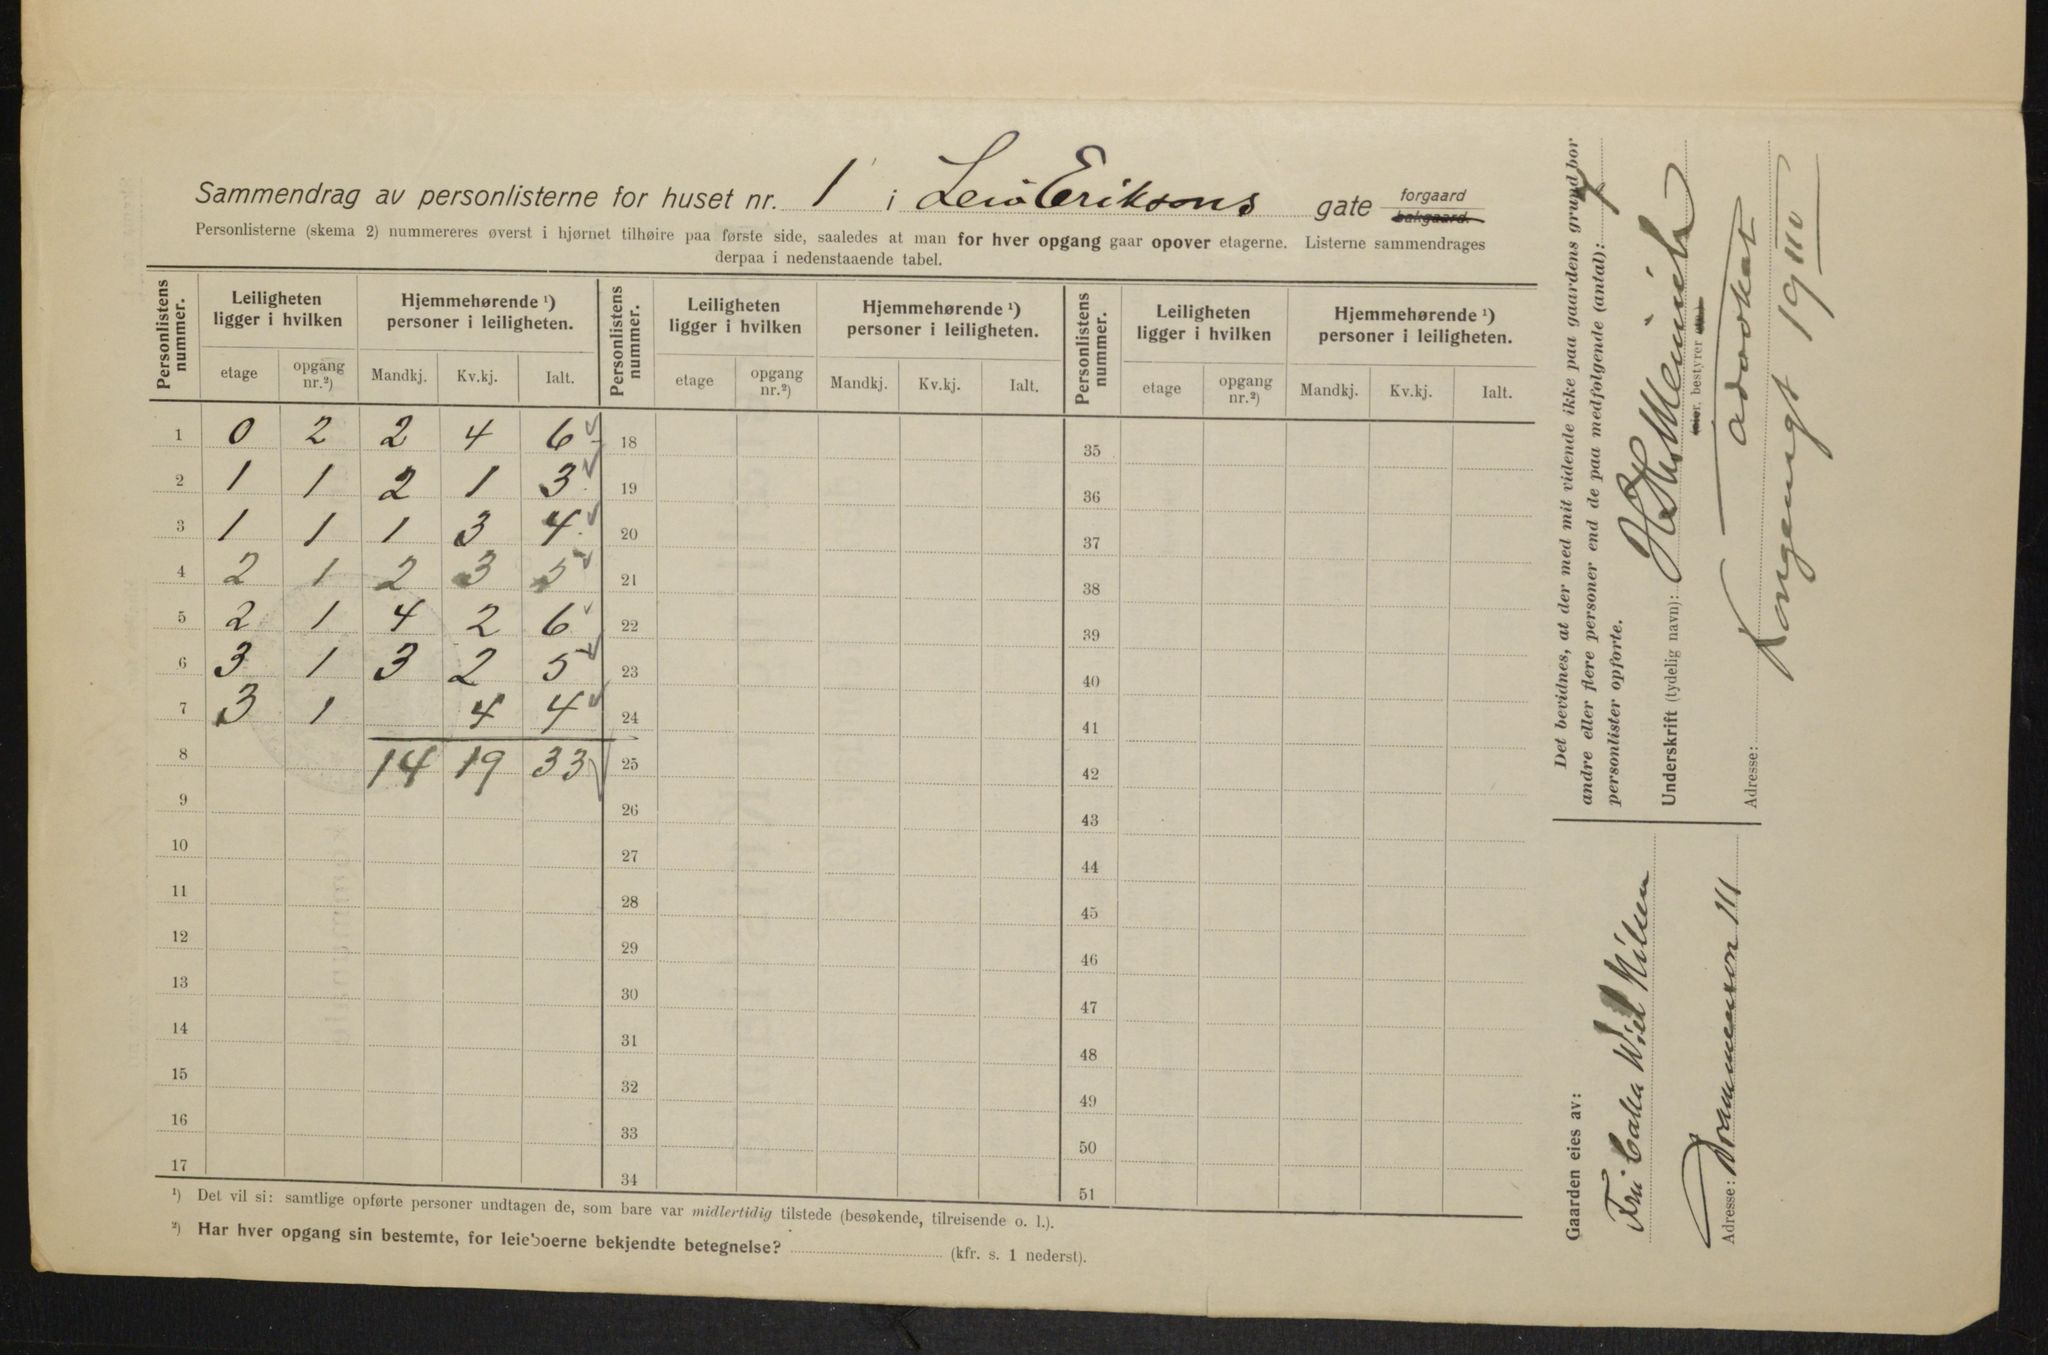 Sammendrag av personlisterne for huset nr. 1 i Leiv Eriksons gate forgaard bakgaard.
Personlisterne (skema 2) nummereres øverst i hjørnet tilhøire paa første side, saaledes at man for hver opgang gaar opover etagerne. Listerne sammendrages
derpaa i nedenstaaende tabel.
Personlistens nummer. Leiligheten ligger i hvilken Hjemmehørende ¹) personer i leiligheten. Personlistens nummer. Leiligheten ligger i hvilken Hjemmehørende ¹) personer i leiligheten. Personlistens nummer. Leiligheten ligger i hvilken Hjemmehørende ¹) personer i leiligheten.
etage opgang nr.²) Mandkj. Kv.kj. Ialt. etage opgang nr.²) Mandkj. Kv.kj. Ialt. etage opgang nr.²) Mandkj. Kv.kj. Ialt.
1 0 2 2 4 6 18 35
2 1 1 2 1 3 19 36
3 1 1 1 3 4 20 37
4 2 1 2 3 5 21 38
5 2 1 4 2 6 22 39
6 3 1 3 2 5 23 40
7 3 1 4 4 24 41
8 14 19 33 25 42
9 26 43
10 27 44
11 28 45
12 29 46
13 30 47
14 31 48
15 32 49
16 33 50
17 34 51
¹) Det vil si: samtlige opførte personer undtagen de, som bare var midlertidig tilstede (besøkende, tilreisende o. l.).
²) Har hver opgang sin bestemte, for leieboerne bekjendte betegnelse? (kfr. s. 1 nederst).
Det bevidnes, at der med mit vidende ikke paa gaardens grund bor
andre eller flere personer end de paa medfølgende (antal): 7
personlister opførte.
Underskrift (tydelig navn):
eier, bestyrer
advokat
Adresse: Kongensgt 19 III
Gaarden eies av:
Fru Calla Wiel Nilsen
Adresse: Drammensvn 111